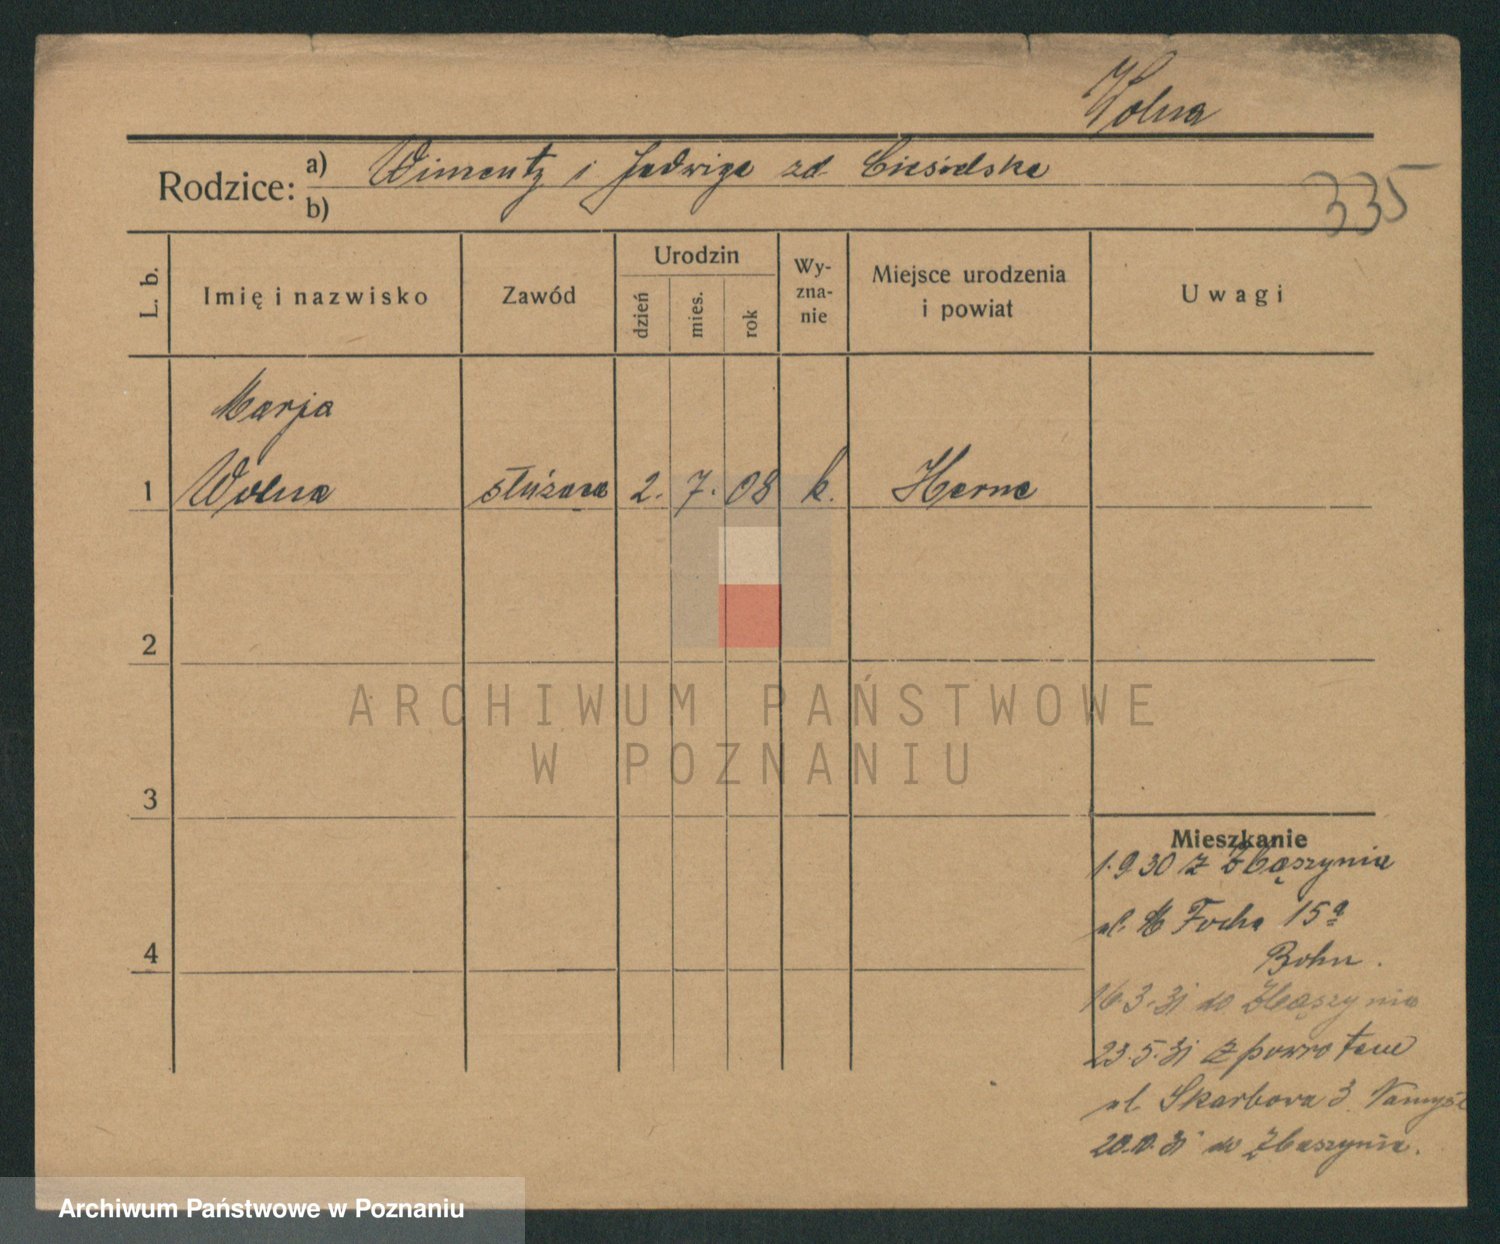 Wolna
Rodzice: a) i Jadwiga zd
b)
335
L. b.
Imię i nazwisko
Zawód
Urodzin
dzień
mies.
rok
Wy-
zna-
nie
Miejsce urodzenia
i powiat
Uwagi
Marja
1 Wolna służąca 2. 7. 08 k. Herne
2
3
4
Mieszkanie
1.9.30 z Zbąszynia
ul. M Focha 15a
Bohn.
16.3.31 do Zbąszynia
23.5.31 z powrotem
ul Skarbowa 3
do Zbąszynia.
ARCHIWUM PAŃSTWOWE
W POZNANIU
Archiwum Państwowe w Poznaniu